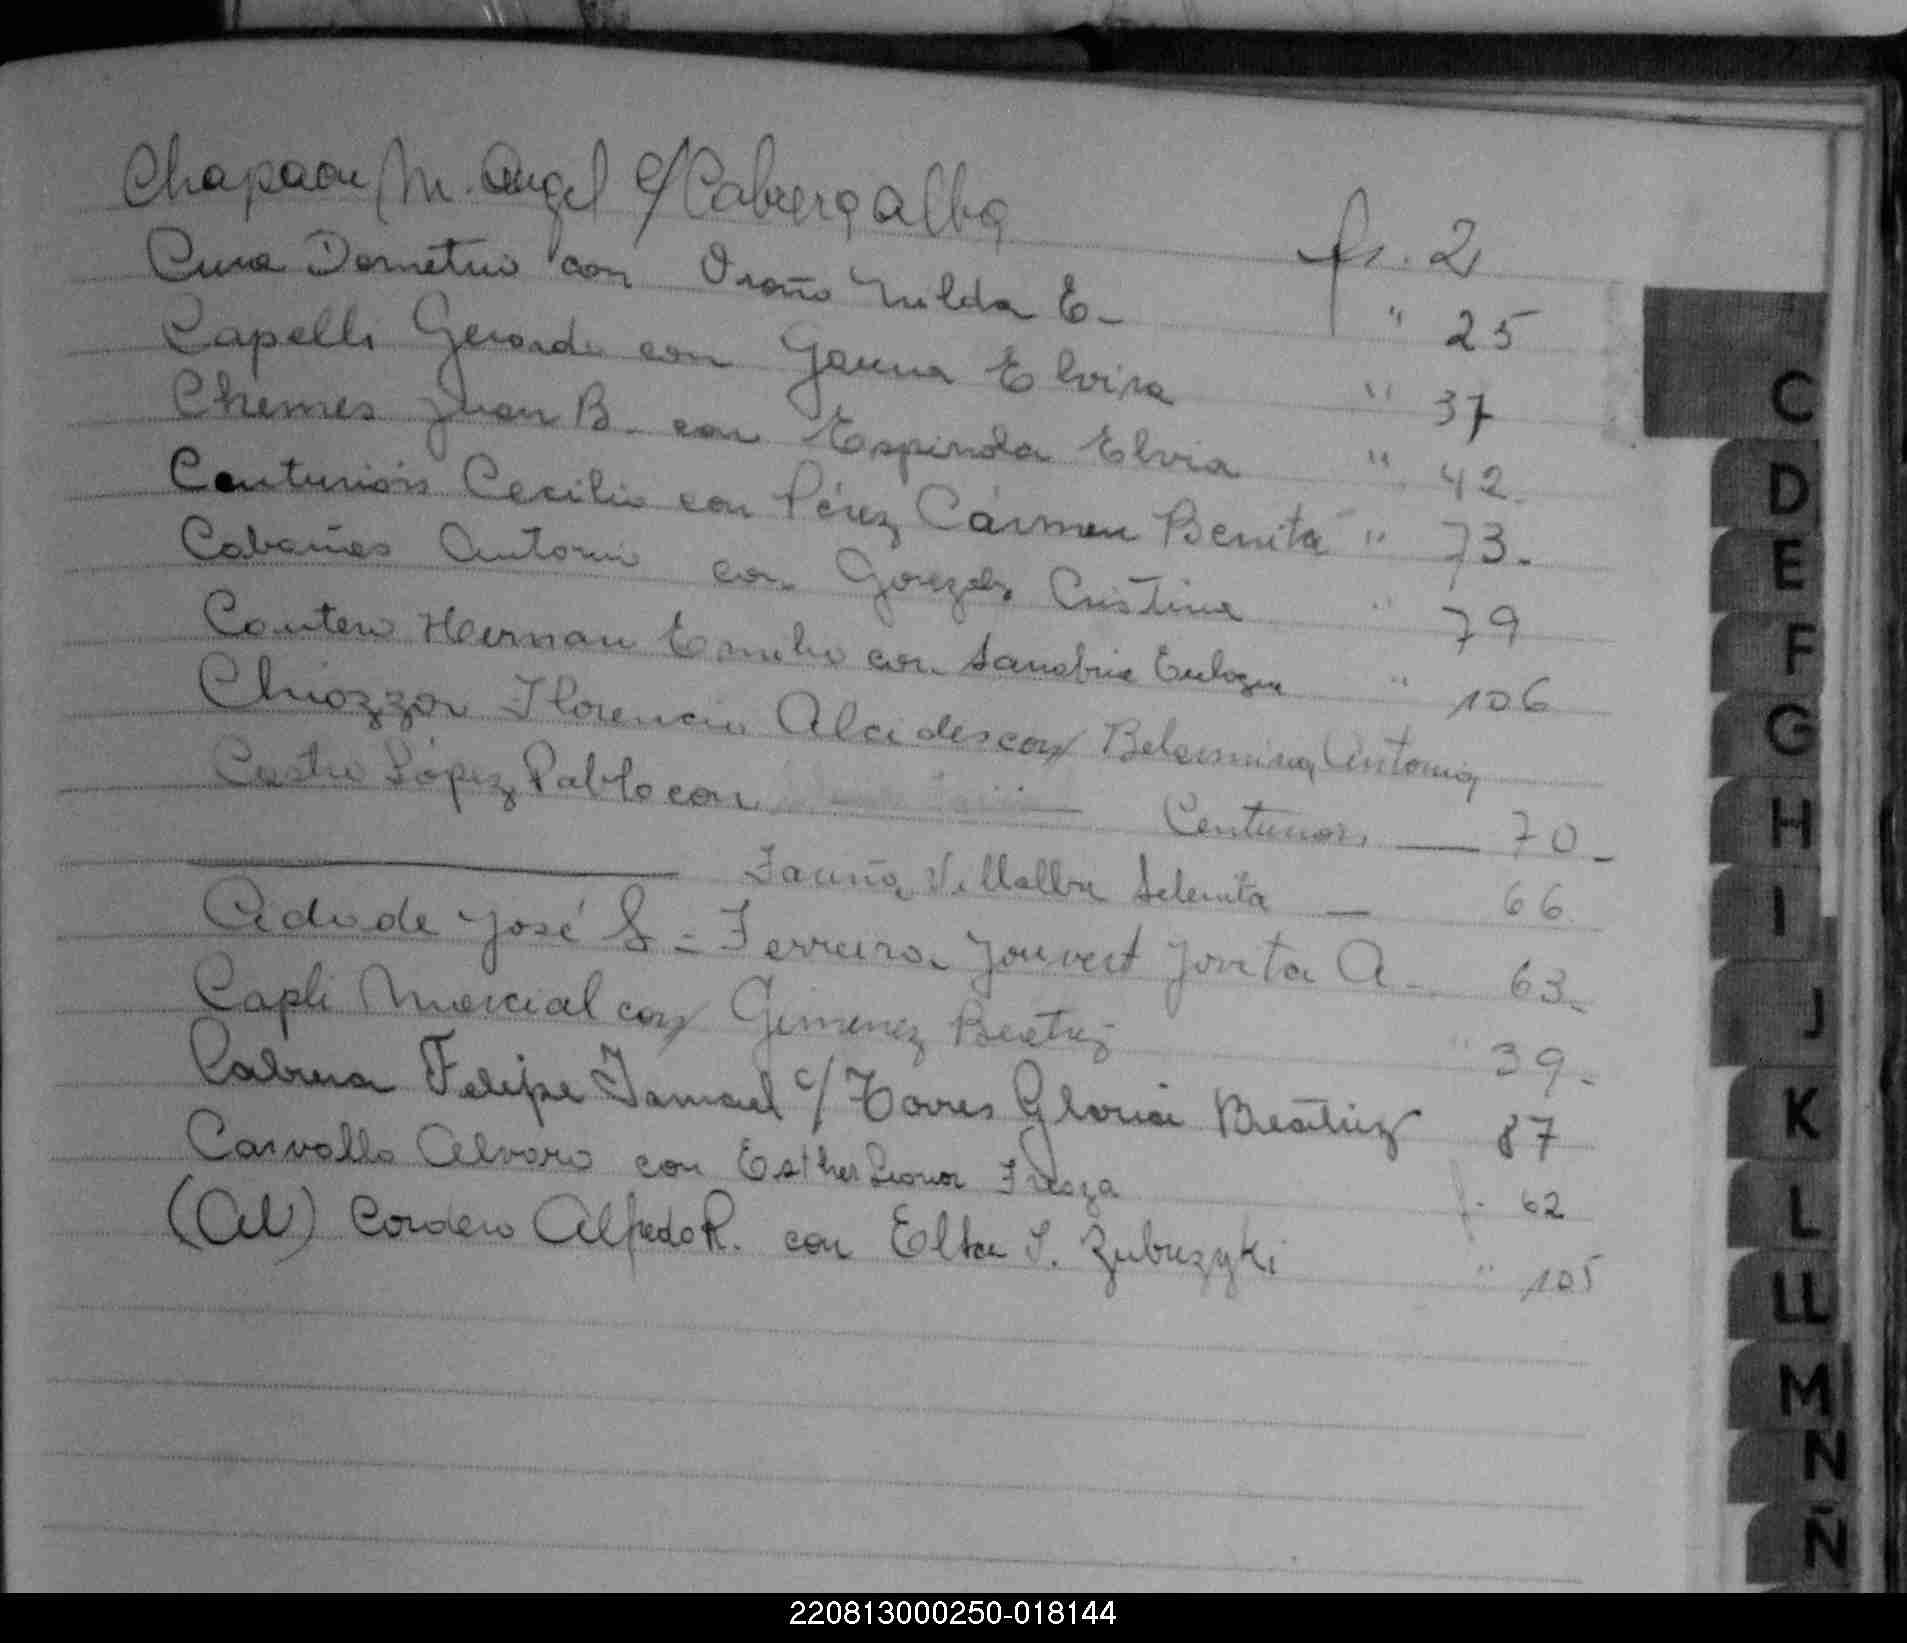 Chapaou M. Angel c/ Cabrera Alba fs. 2
Cura Demetrio con Osoño Nilda E- " 25
Capelli Gerardo con Gauna Elvira " 37
Chemes Juan B. con Espinola Elvia " 42-
Centurión Cecilio con Pérez Cármen Benita " 73-
Cabañas Antonio con Gonzalez Cristina " 79
Contero Hernan Emilio con Sanabria Eulogia " 106
Chiozza Florencio Alcides con Belarmina Antonia
Castro López Pablo con
Centurion — 70-
Fariña Villalba Selenita — 66
José S - Ferreira Jouvert Jovita A- 63-
Capli Marcial con Gimenez Beatriz " 39-
Cabrera Felipe Ismael c/ Torres Gloria Beatriz 87
Carvallo Alvaro con Esther Leonor Fleoza f. 62
Cordero Alfredo R. con Elsa S. Zubrzyki " 105
C
D
E
F
G
H
I
J
K
L
LL
M
N
Ñ
220813000250-018144